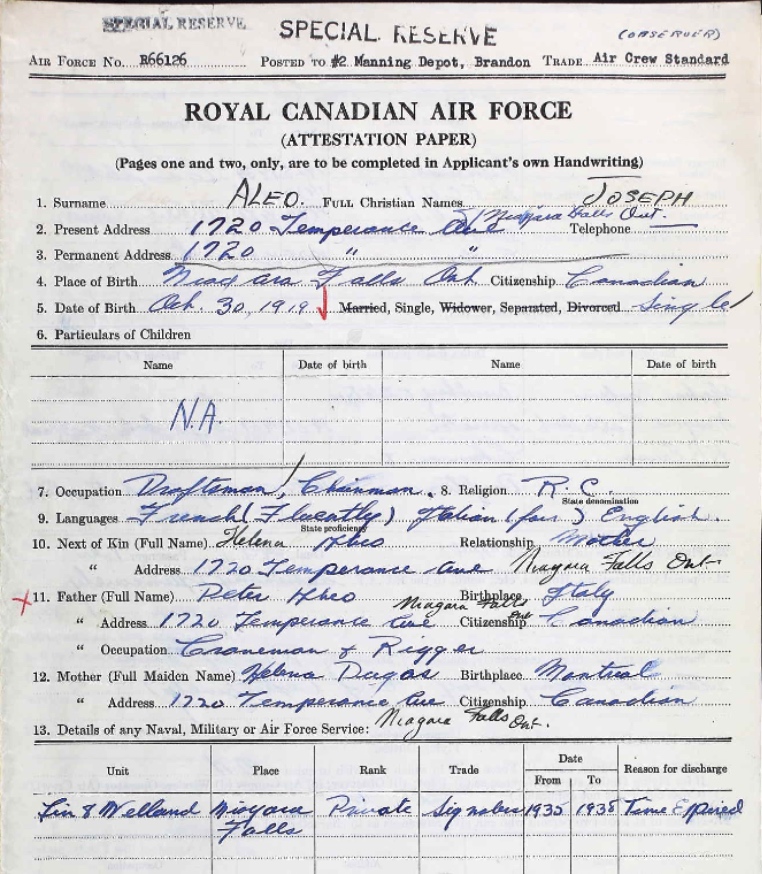 SPECIAL RESERVE SPECIAL RESERVE (OBSERVER)
AIR FORCE NO. R66126 POSTED TO #2 Manning Depot, Brandon TRADE Air Crew Standard
ROYAL CANADIAN AIR FORCE
(ATTESTATION PAPER)
(Pages one and two, only, are to be completed in Applicant's own Handwriting)
1. Surname ALEO. FULL Christian Names JOSEPH
2. Present Address 1720 Temperance Ave Niagara Falls Ont. Telephone —
3. Permanent Address 1720 " "
4. Place of Birth Niagara Falls Ont Citizenship Canadian
5. Date of Birth Oct. 30, 1919 Married, Single, Widower, Separated, Divorced Single
6. Particulars of Children
Name Date of birth Name Date of birth
N.A.
7. Occupation Draftsman, Chainman. 8. Religion R.C.
State denomination
9. Languages French (Fluently) Italian (fair) English.
State proficiency
10. Next of Kin (Full Name) Helena Aleo Relationship Mother
" Address 1720 Temperance Ave Niagara Falls Ont-
11. Father (Full Name) Peter Aleo Birthplace Italy
Niagara Falls Ont
" Address 1720 Temperance Ave Citizenship Canadian
" Occupation Craneman & Rigger
12. Mother (Full Maiden Name) Helena Dugas Birthplace Montreal
" Address 1720 Temperance Ave Citizenship Canadian
13. Details of any Naval, Military or Air Force Service: Niagara Falls Ont.
Unit Place Rank Trade Date Reason for discharge
From To
Lin & Welland Niagara Falls Private Signaller 1935 1938 Time Expired